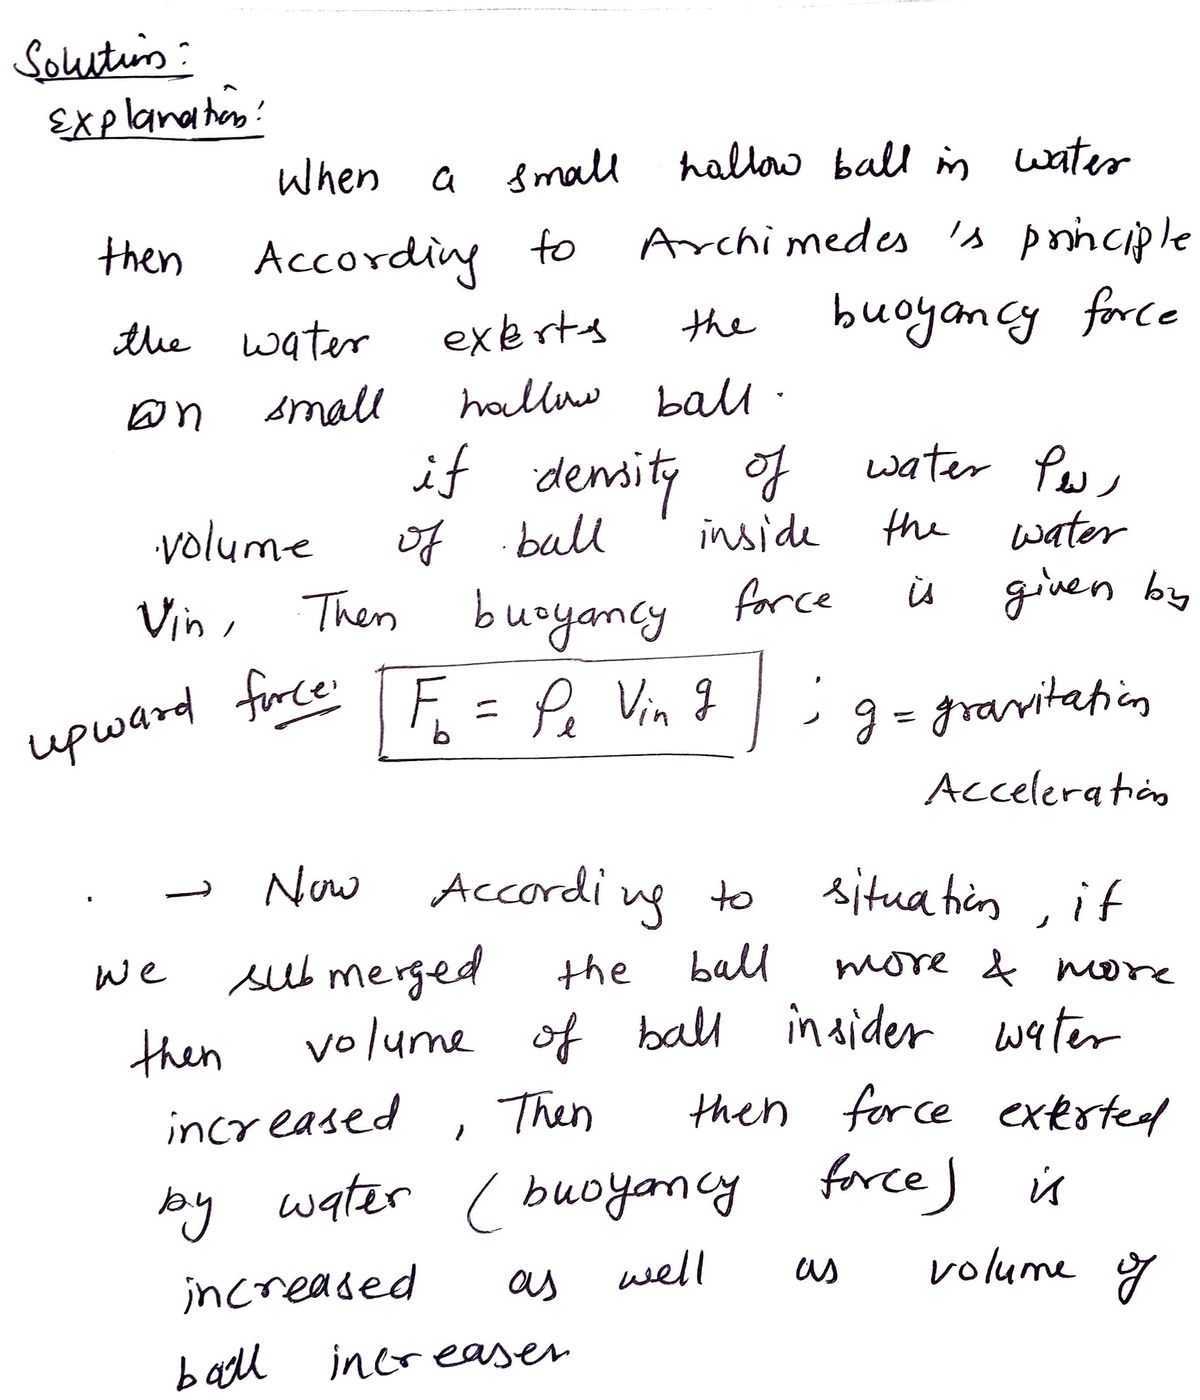 Solution:
Explanation:
When a small hollow ball in water
then According to Archimedes 's principle
the water exerts the buoyancy force
on small hollow ball.
if density of water ρw,
volume of ball inside the water
Vin, Then buoyancy force is given by
upward force: F_b = ρ_l Vin g ; g = gravitation
Acceleration
. → Now According to situation, if
we submerged the ball more & more
then volume of ball insider water
increased, Then then force exerted
by water (buoyancy force) is
increased as well as volume of
ball increases